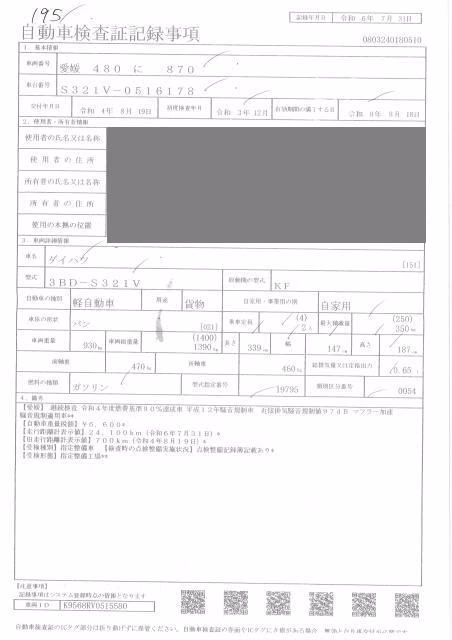 195
記録年月日 令和 6年 7月 31日
自動車検査証記録事項
0803240180510
1. 基本情報
車両番号 愛媛 480 に 870
車台番号 S321V-0516178
交付年月日 令和 4年 8月 19日 初度検査年月 令和 3年 12月 有効期間の満了する日
2. 使用者・所有者情報
使用者の氏名又は名称
使用者の住所
所有者の氏名又は名称
所有者の住所
使用の本拠の位置
3. 車両詳細情報
車名 ダイハツ [151]
型式 3BD-S321V 原動機の型式 KF
自動車の種別 軽自動車 用途 貨物 自家用・事業用の別 自家用
車体の形状 バン [021] 乗車定員 (4) 2人 最大積載量 (250) 350kg
車両重量 930kg 車両総重量 (1400) 1390kg 長さ 339cm 幅 147cm 高さ 187cm
前軸重 470kg 後軸重 460kg 総排気量又は定格出力 0.65
燃料の種類 ガソリン 型式指定番号 19795 類別区分番号 0054
4. 備考
【愛媛】 継続検査 令和4年度燃費基準90%達成車 平成12年騒音規制車 近接排気騒音規制値97dB マフラー加速
騒音規制適用車**
【自動車重量税額】 ¥6,600*
【走行距離計表示値】 24,100km (令和6年7月31日)*
【旧走行距離計表示値】 700km (令和4年8月19日)*
【受検種別】 指定整備車 【検査時の点検整備実施状況】 点検整備記録簿記載あり*
【受検形態】 指定整備工場**
【注意事項】
記録事項はシステム登録時点の情報となります
車両ID K9568RV0515580
自動車検査証のICタグ部分は折り曲げずに保管ください。